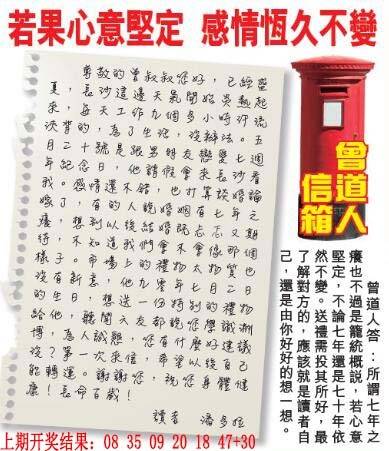 若果心意堅定 感情恆久不變
尊敬的曾叔叔您好,已經盛
夏,長沙這邊天氣開始炎熱起
來,每天工作九個多小時汗流
浹背的,為了生活,沒辦法。五
月二十號是跟男朋友戀愛七週
年紀念日,他請假會來長沙看
我。感情還不錯,也打算談婚論
嫁了,有的人說婚姻有七年之
癢,想到以後結婚既忐忑又期
待,不知道我們會不會像那個
樣子。市場上的禮物太物質也
沒有新意,他九零年七月二日
的生日,想送一份特別的禮物
給他,聽聞六友都說您學識淵
博,為人誠懇,您有什麼好建議
沒?第一次來信,希望以後自己
能轉運。謝謝您,祝您身體健
康!長命百歲!
讀者 潘多拉
曾道人
信箱
曾道人答:所謂七年之
癢也不過是籠統概說,若心意
堅定,不論七年還是七十年依
然不變。送禮需投其所好,最
了解對方的,應該就是讀者自
己,還是由你好好的想一想。
上期开奖结果: 08 35 09 20 18 47+30